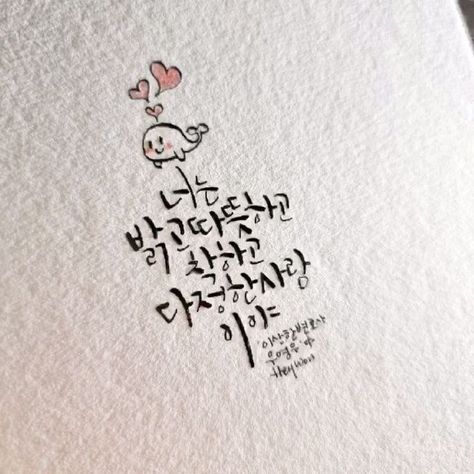 너는
밝고 따뜻하고
착하고
다정한 사람
이야
'이상한변호사
우영우' 中